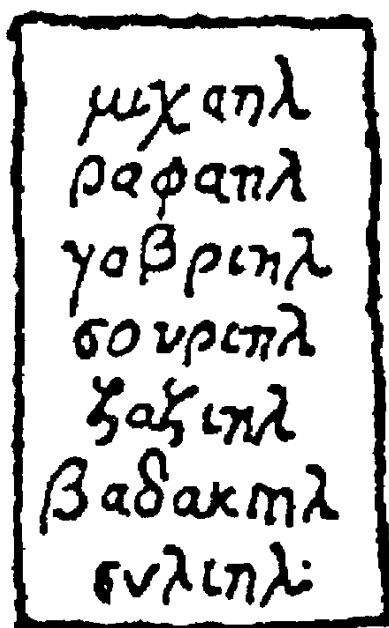 μιχαηλ
ραφαηλ
γαβριηλ
σουριηλ
ζαζιηλ
βαδακιηλ
συλιηλ: